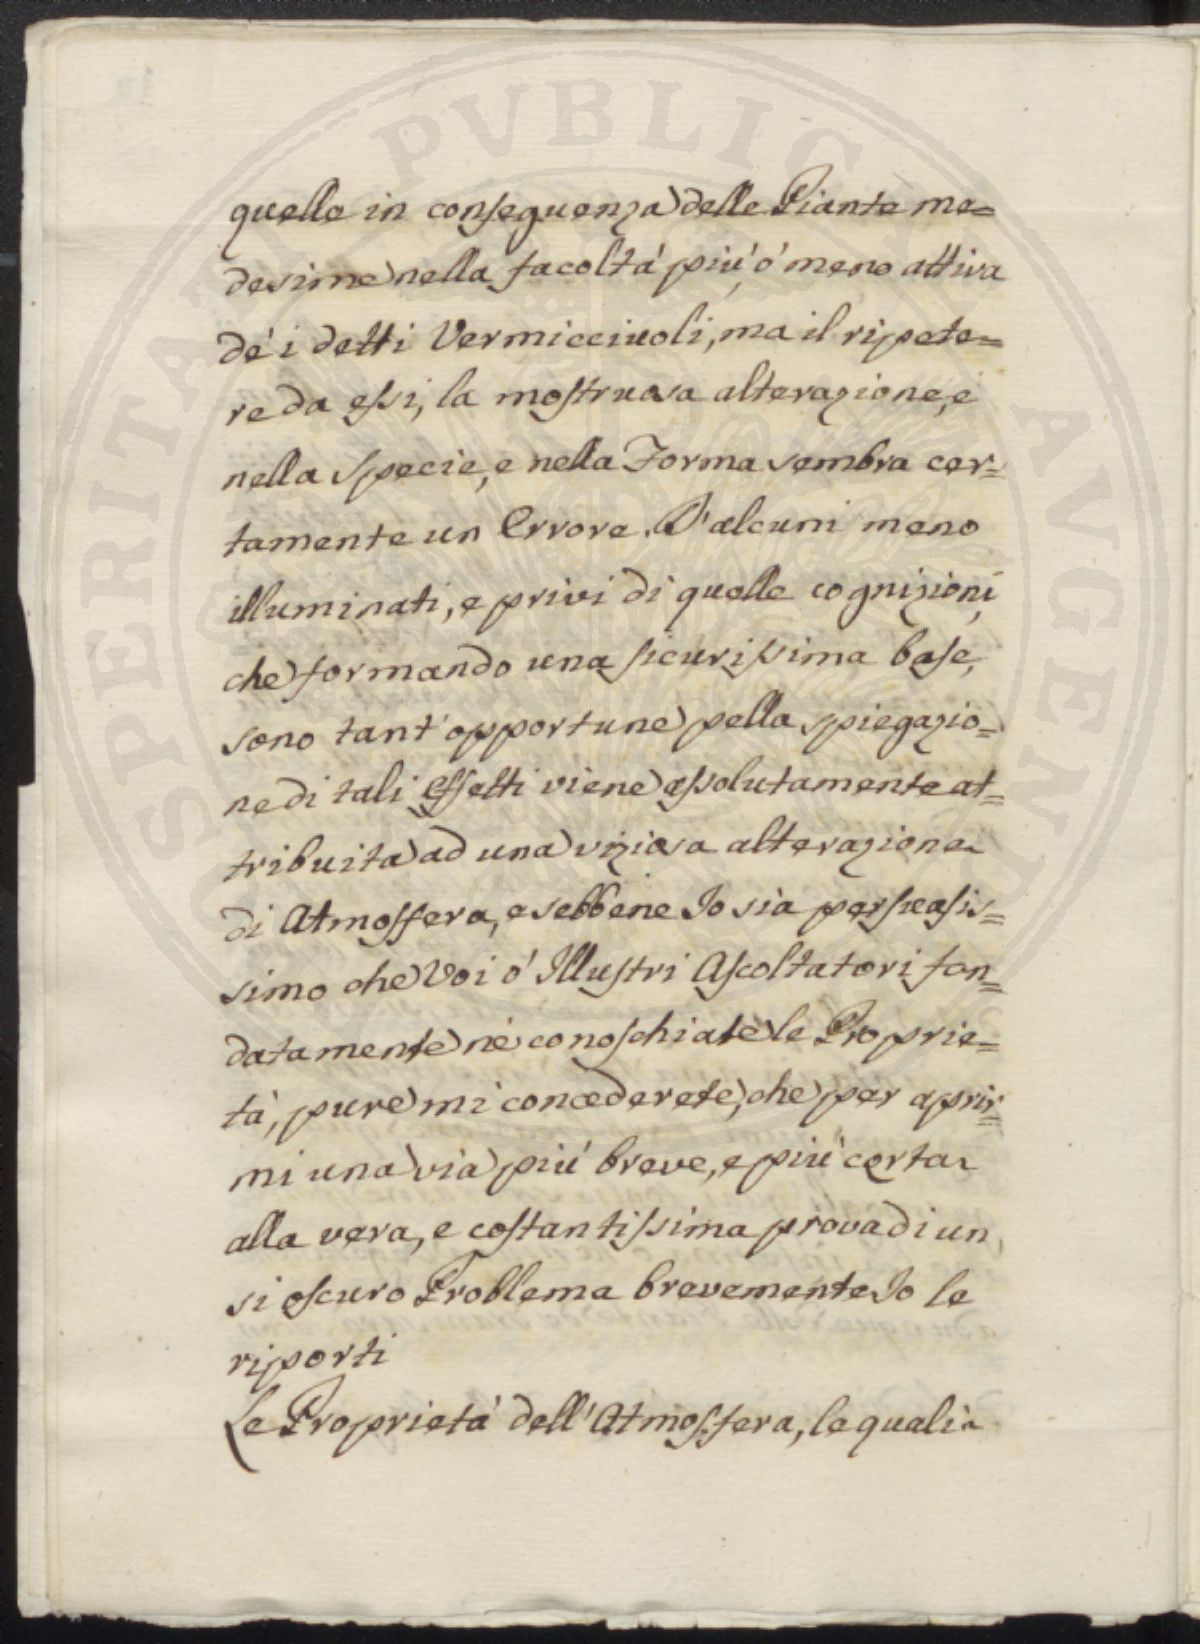 PROSPERITATI PVBLICAE AVGENDAE
quelle in conseguenza delle Piante me=
desime nella facoltà più, ò meno attiva
dè i detti Vermicciuoli, ma il ripete=
re da essi, la mostruosa alterazione, e
nella Specie, e nella Forma sembra cer=
tamente un Errore. D'alcuni meno
illuminati, e privi di quelle cognizioni,
che formando una sicurissima base,
sono tant'opportune pella spiegazio=
ne di tali Effetti viene assolutamente at=
tribuita ad una viziosa alterazione
di Atmosfera, e sebbene Io sia persuasis=
simo che Voi ò Illustri Ascoltatori fon=
datamente nè conoschiate le Proprie=
tà, pure mi concederete, che per aprir=
mi una via più breve, e più certa
alla vera, e costantissima prova di un
si oscuro Problema brevemente Io le
riporti
Le Proprietà dell'Atmosfera, le quali